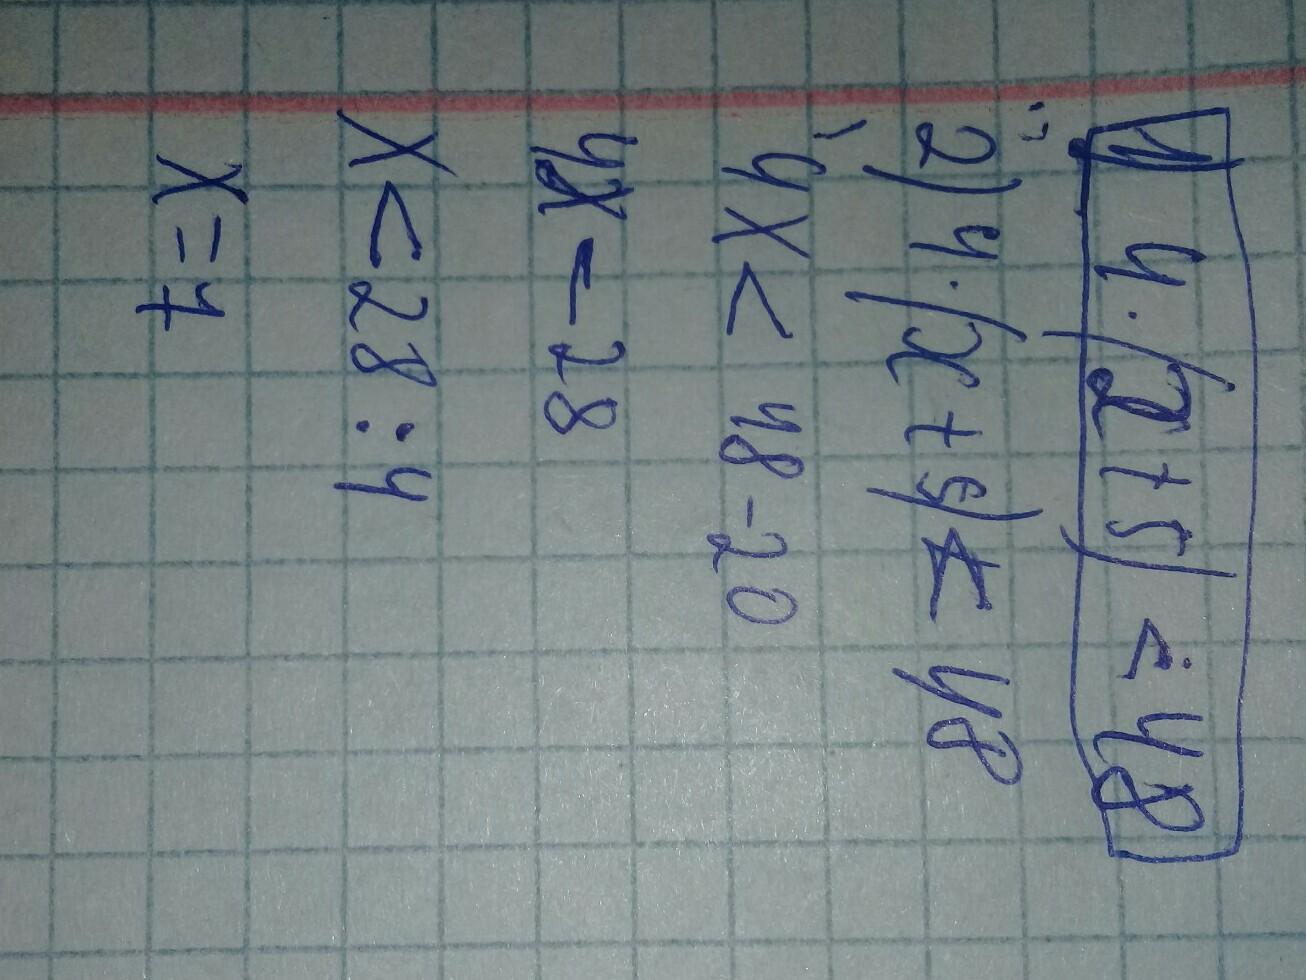 4·(x+5) < 48
2) 4·(x+5) < 48
4x < 48-20
4x - 28
x < 28 : 4
x = 7